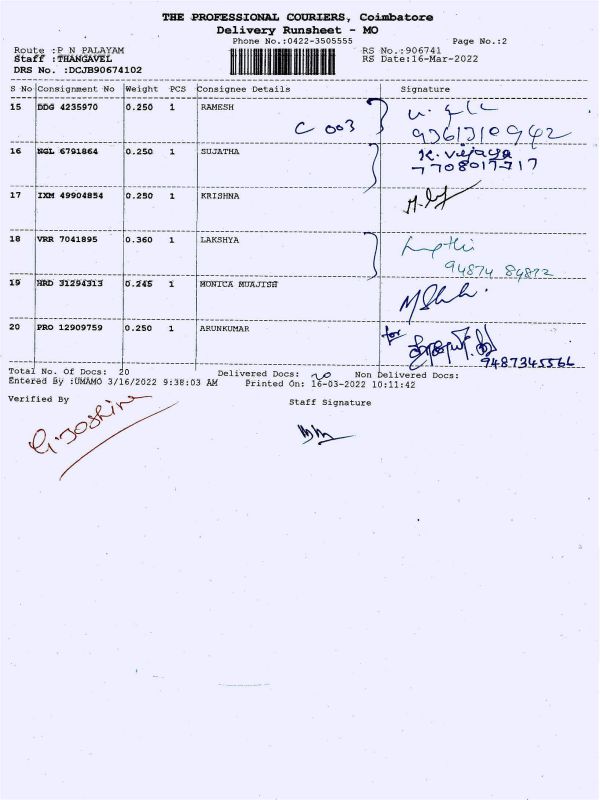 THE PROFESSIONAL COURIERS, Coimbatore
Delivery Runsheet - MO
Phone No.:0422-3505555 Page No.:2
Route :P N PALAYAM RS No.:906741
Staff :THANGAVEL RS Date:16-Mar-2022
DRS No. :DCJB90674102
S No Consignment No Weight PCS Consignee Details Signature
15 DDG 4235970 0.250 1 RAMESH
C 003 9361310942
16 NGL 6791864 0.250 1 SUJATHA K. Vijaya
7708017717
17 IXM 49904854 0.250 1 KRISHNA
18 VRR 7041895 0.360 1 LAKSHYA
94874 84812
19 HRD 31294313 0.245 1 MONICA MUAJISH
20 PRO 12909759 0.250 1 ARUNKUMAR for
9487345566
Total No. Of Docs: 20 Delivered Docs: 20 Non Delivered Docs:
Entered By :UMAMO 3/16/2022 9:38:03 AM Printed On: 16-03-2022 10:11:42
Verified By Staff Signature
G. Joshine